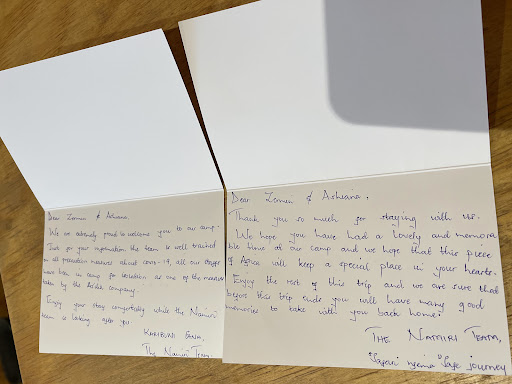 Dear Zennia & Ashiana,
We are extremely proud to welcome you to our camp.
Just for your information the team is well trained
on all preventive measures about covid-19, all our staff
have been in camp for isolation as one of the measures
taken by the Asilia company.
Enjoy your stay comfortably while the Namiri
team is looking after you.
KARIBUNI SANA,
The Namiri Team.
Dear Zennia & Ashiana,
Thank you so much for staying with us.
We hope you have had a lovely and memora
ble time at our camp and we hope that this piece
of Africa will keep a special place in your hearts.
Enjoy the rest of this trip and we are sure that
before this trip ends you will have many good
memories to take with you back home.
THE NAMIRI TEAM,
Safari njema Safe journey